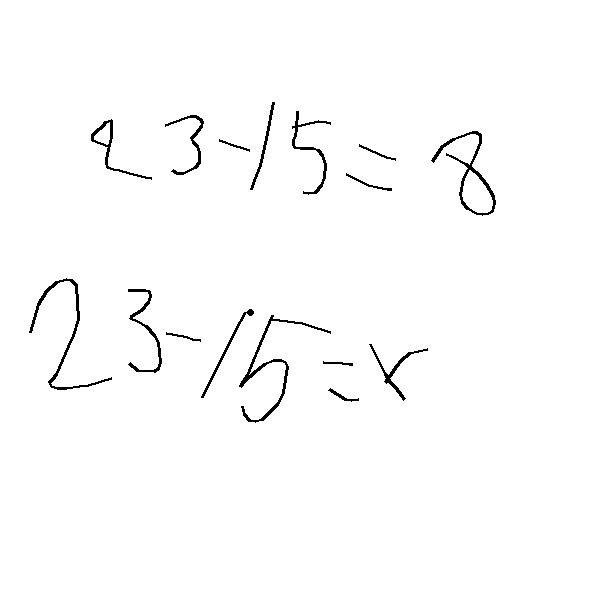 23-15=8
23-15=x